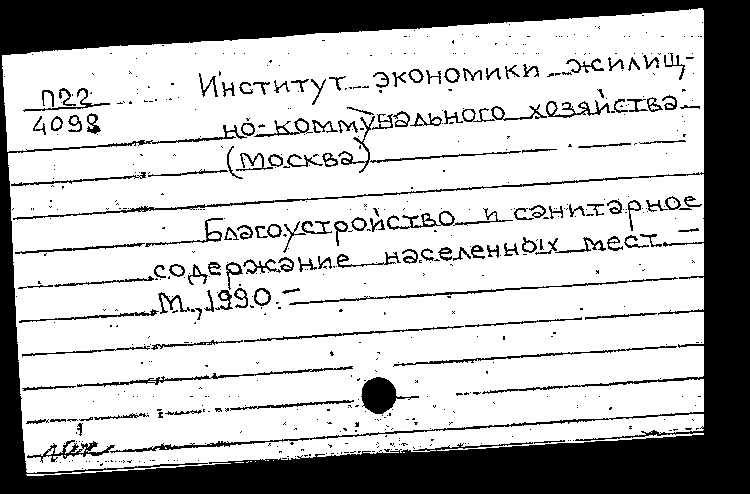 П22
4098
Институт экономики жилищ-
но-коммунального хозяйства
(Москва)
Благоустройство и санитарное
содержание населенных мест. —
М., 1990. —